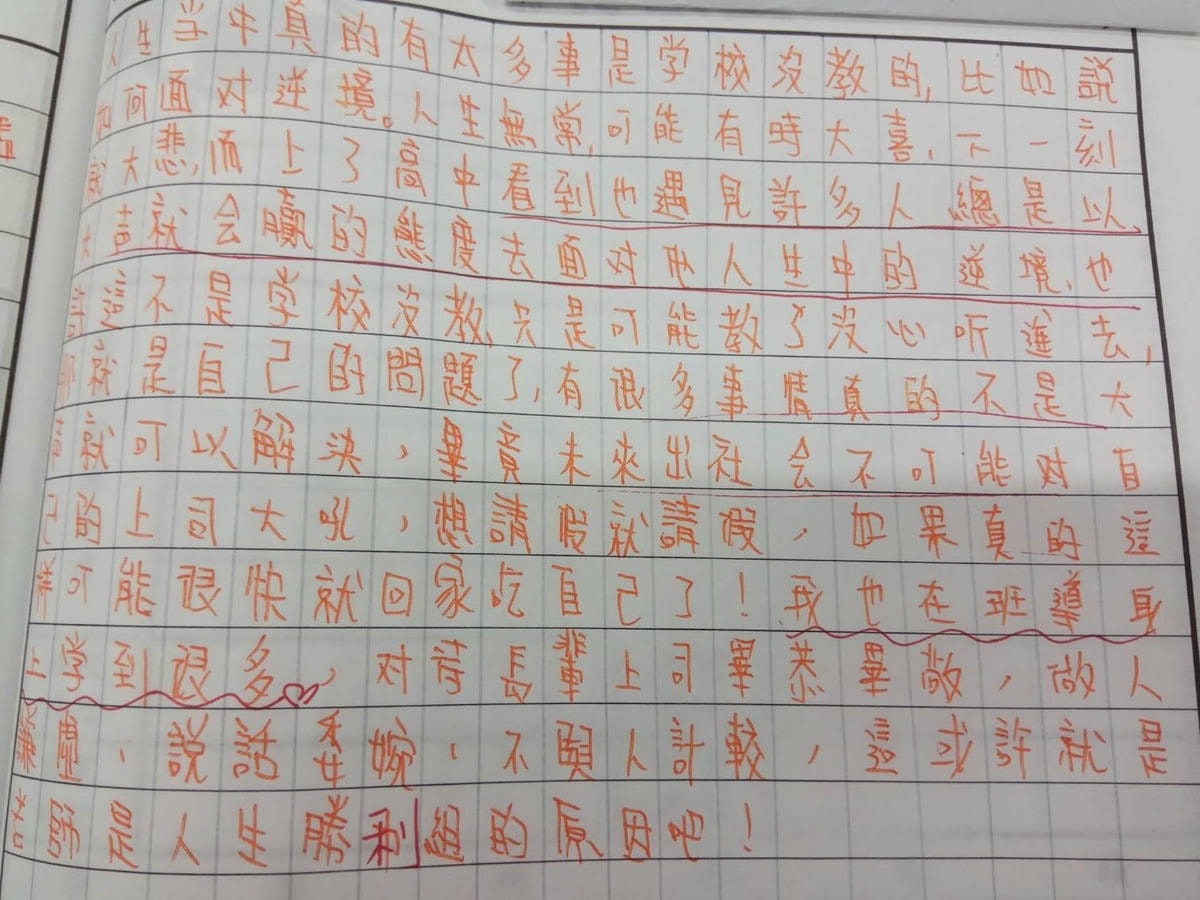 人生学中真的有太多事是学校沒教的,比如說
如何面对逆境。人生無常,可能有時大喜,下一刻
就大悲,而上了高中看到也遇見許多人總是以
大吉就会贏的態度去面对取人生中的逆境,也
許這不是学校沒教,只是可能教了沒心听進去,
那就是自己的問題了,有很多事情真的不是大
吉就可以解決,畢竟未來出社会不可能对自
己的上司大吼,想請假就請假,如果真的這
樣可能很快就回家吃自己了!我也在班導身
上学到很多,对待長輩上司畢恭畢敬,做人
謙虛,說話委婉,不與人計較,這或許就是
老師是人生勝利組的原因吧!